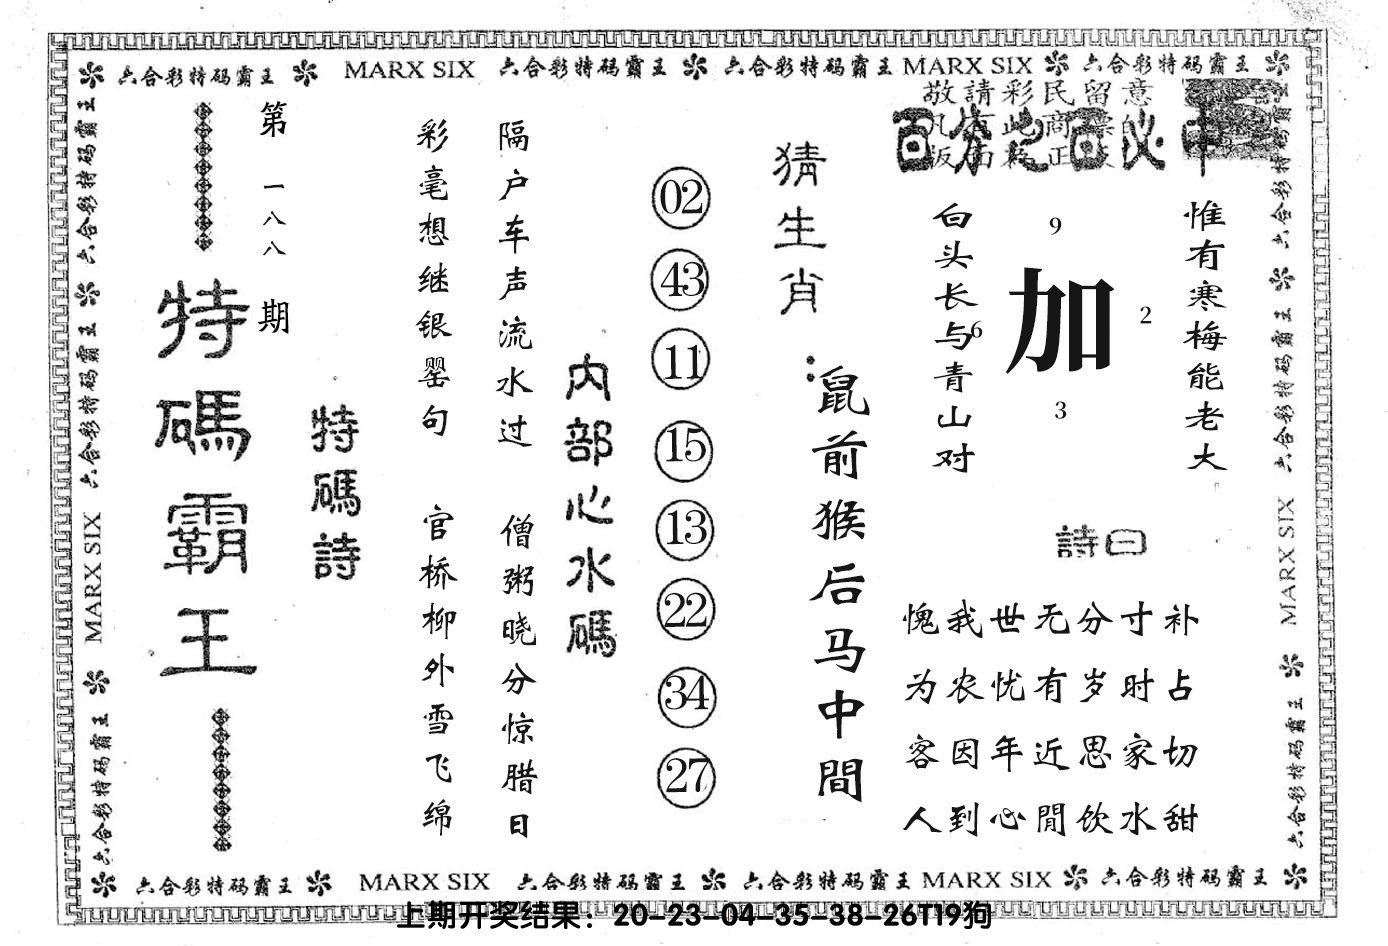 六合彩特码霸王 MARX SIX 六合彩特码霸王 六合彩特码霸王 MARX SIX 六合彩特码霸王
敬請彩民留意
百分之百必中
惟有寒梅能老大
白头长与青山对
9
加
6
2
3
詩曰
愧我世无分寸补
为农忧有岁时占
客因年近思家切
人到心閒饮水甜
猜生肖:
鼠前猴后马中間
02
43
11
15
13
22
34
27
内部心水碼
隔户车声流水过 僧粥晓分惊腊日
彩毫想继银罂句 官桥柳外雪飞绵
特碼詩
第一八八期
特碼霸王
六合彩特码霸王 六合彩特码霸王 MARX SIX 六合彩特码霸王
六合彩特码霸王 六合彩特码霸王 MARX SIX 六合彩特码霸王
六合彩特码霸王 MARX SIX 六合彩特码霸王 六合彩特码霸王 MARX SIX 六合彩特码霸王
上期开奖结果：20-23-04-35-38-26T19狗